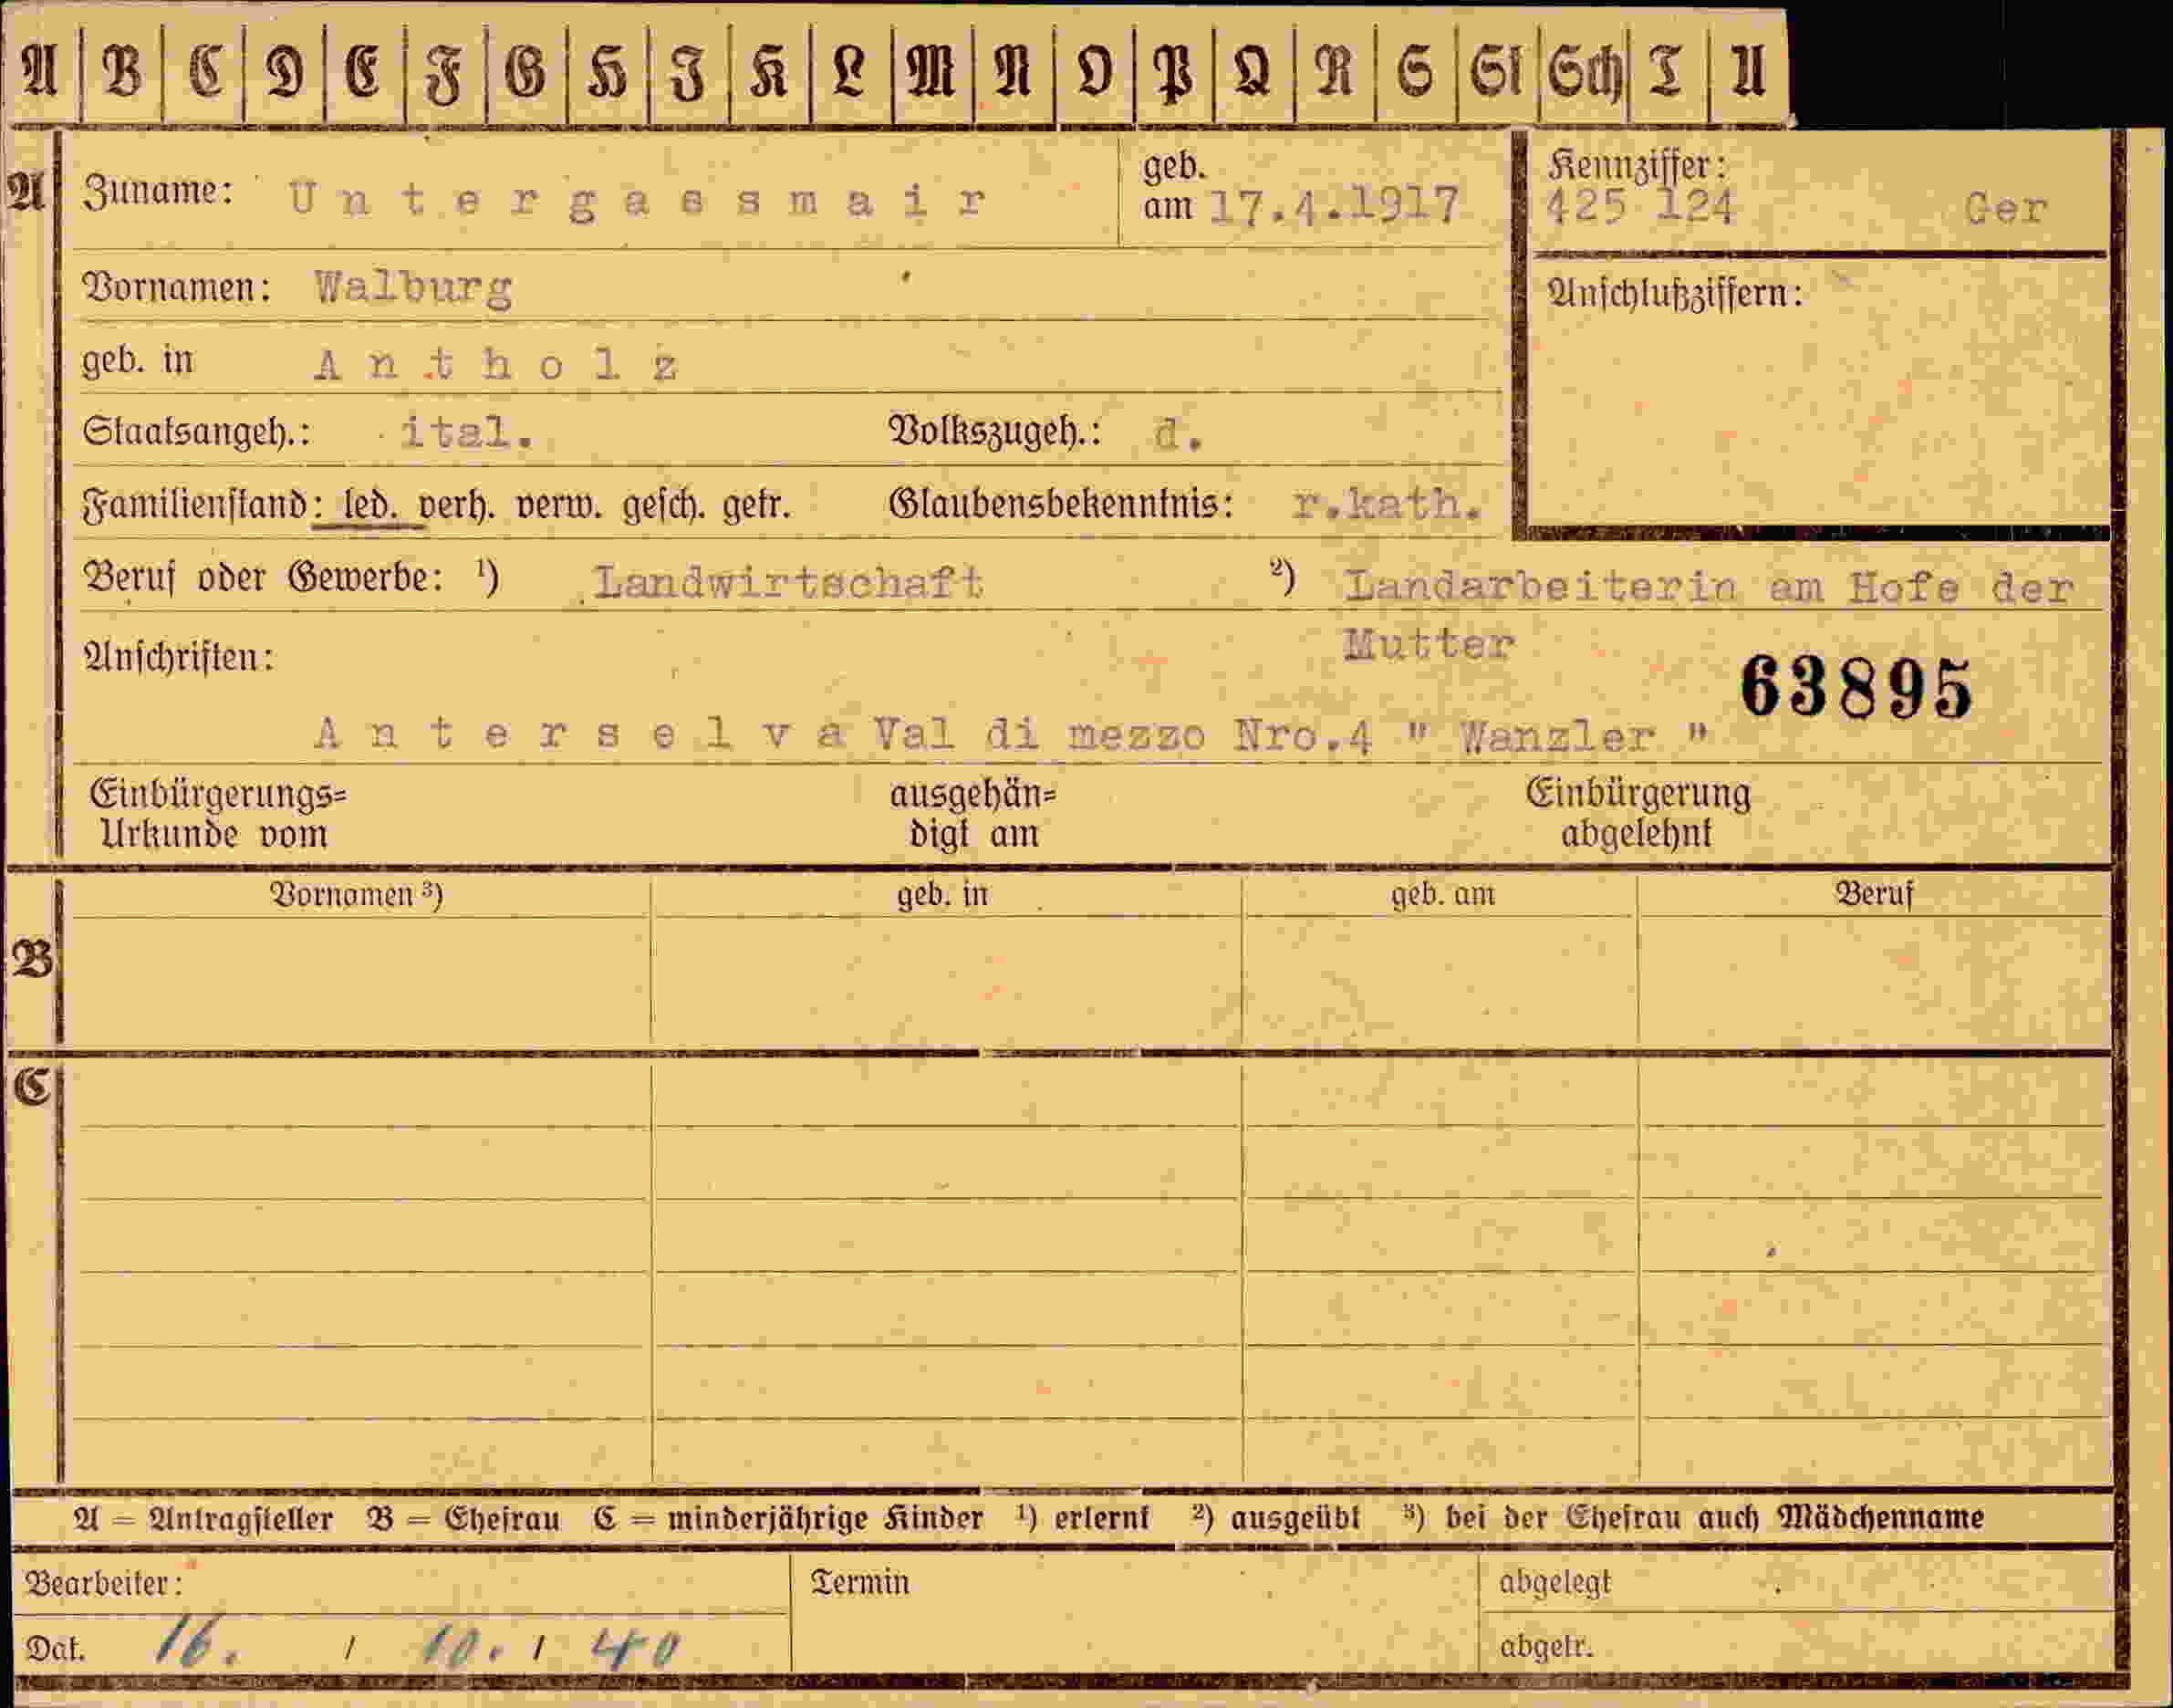 A B C D E F G H J K L M N O P Q R S St Sch T U
A Zuname: Untergassmair geb. am 17.4.1917 Kennziffer: 425 124 Ger
Vornamen: Walburg Anschlußziffern:
geb. in Antholz
Staatsangeh.: ital. Volkszugeh.: d.
Familienstand: led. verh. verw. gesch. getr. Glaubensbekenntnis: r.kath.
Beruf oder Gewerbe: ¹) Landwirtschaft ²) Landarbeiterin am Hofe der
Mutter
Anschriften: 63895
Anterselva Val di mezzo Nro.4 " Wanzler "
Einbürgerungs= ausgehän= Einbürgerung
Urkunde vom digt am abgelehnt
Vornamen ³) geb. in geb. am Beruf
B
C
A = Antragsteller B = Ehefrau C = minderjährige Kinder ¹) erlernt ²) ausgeübt ³) bei der Ehefrau auch Mädchenname
Bearbeiter: Termin abgelegt
Dat. 16. / 10. / 40 abgetr.